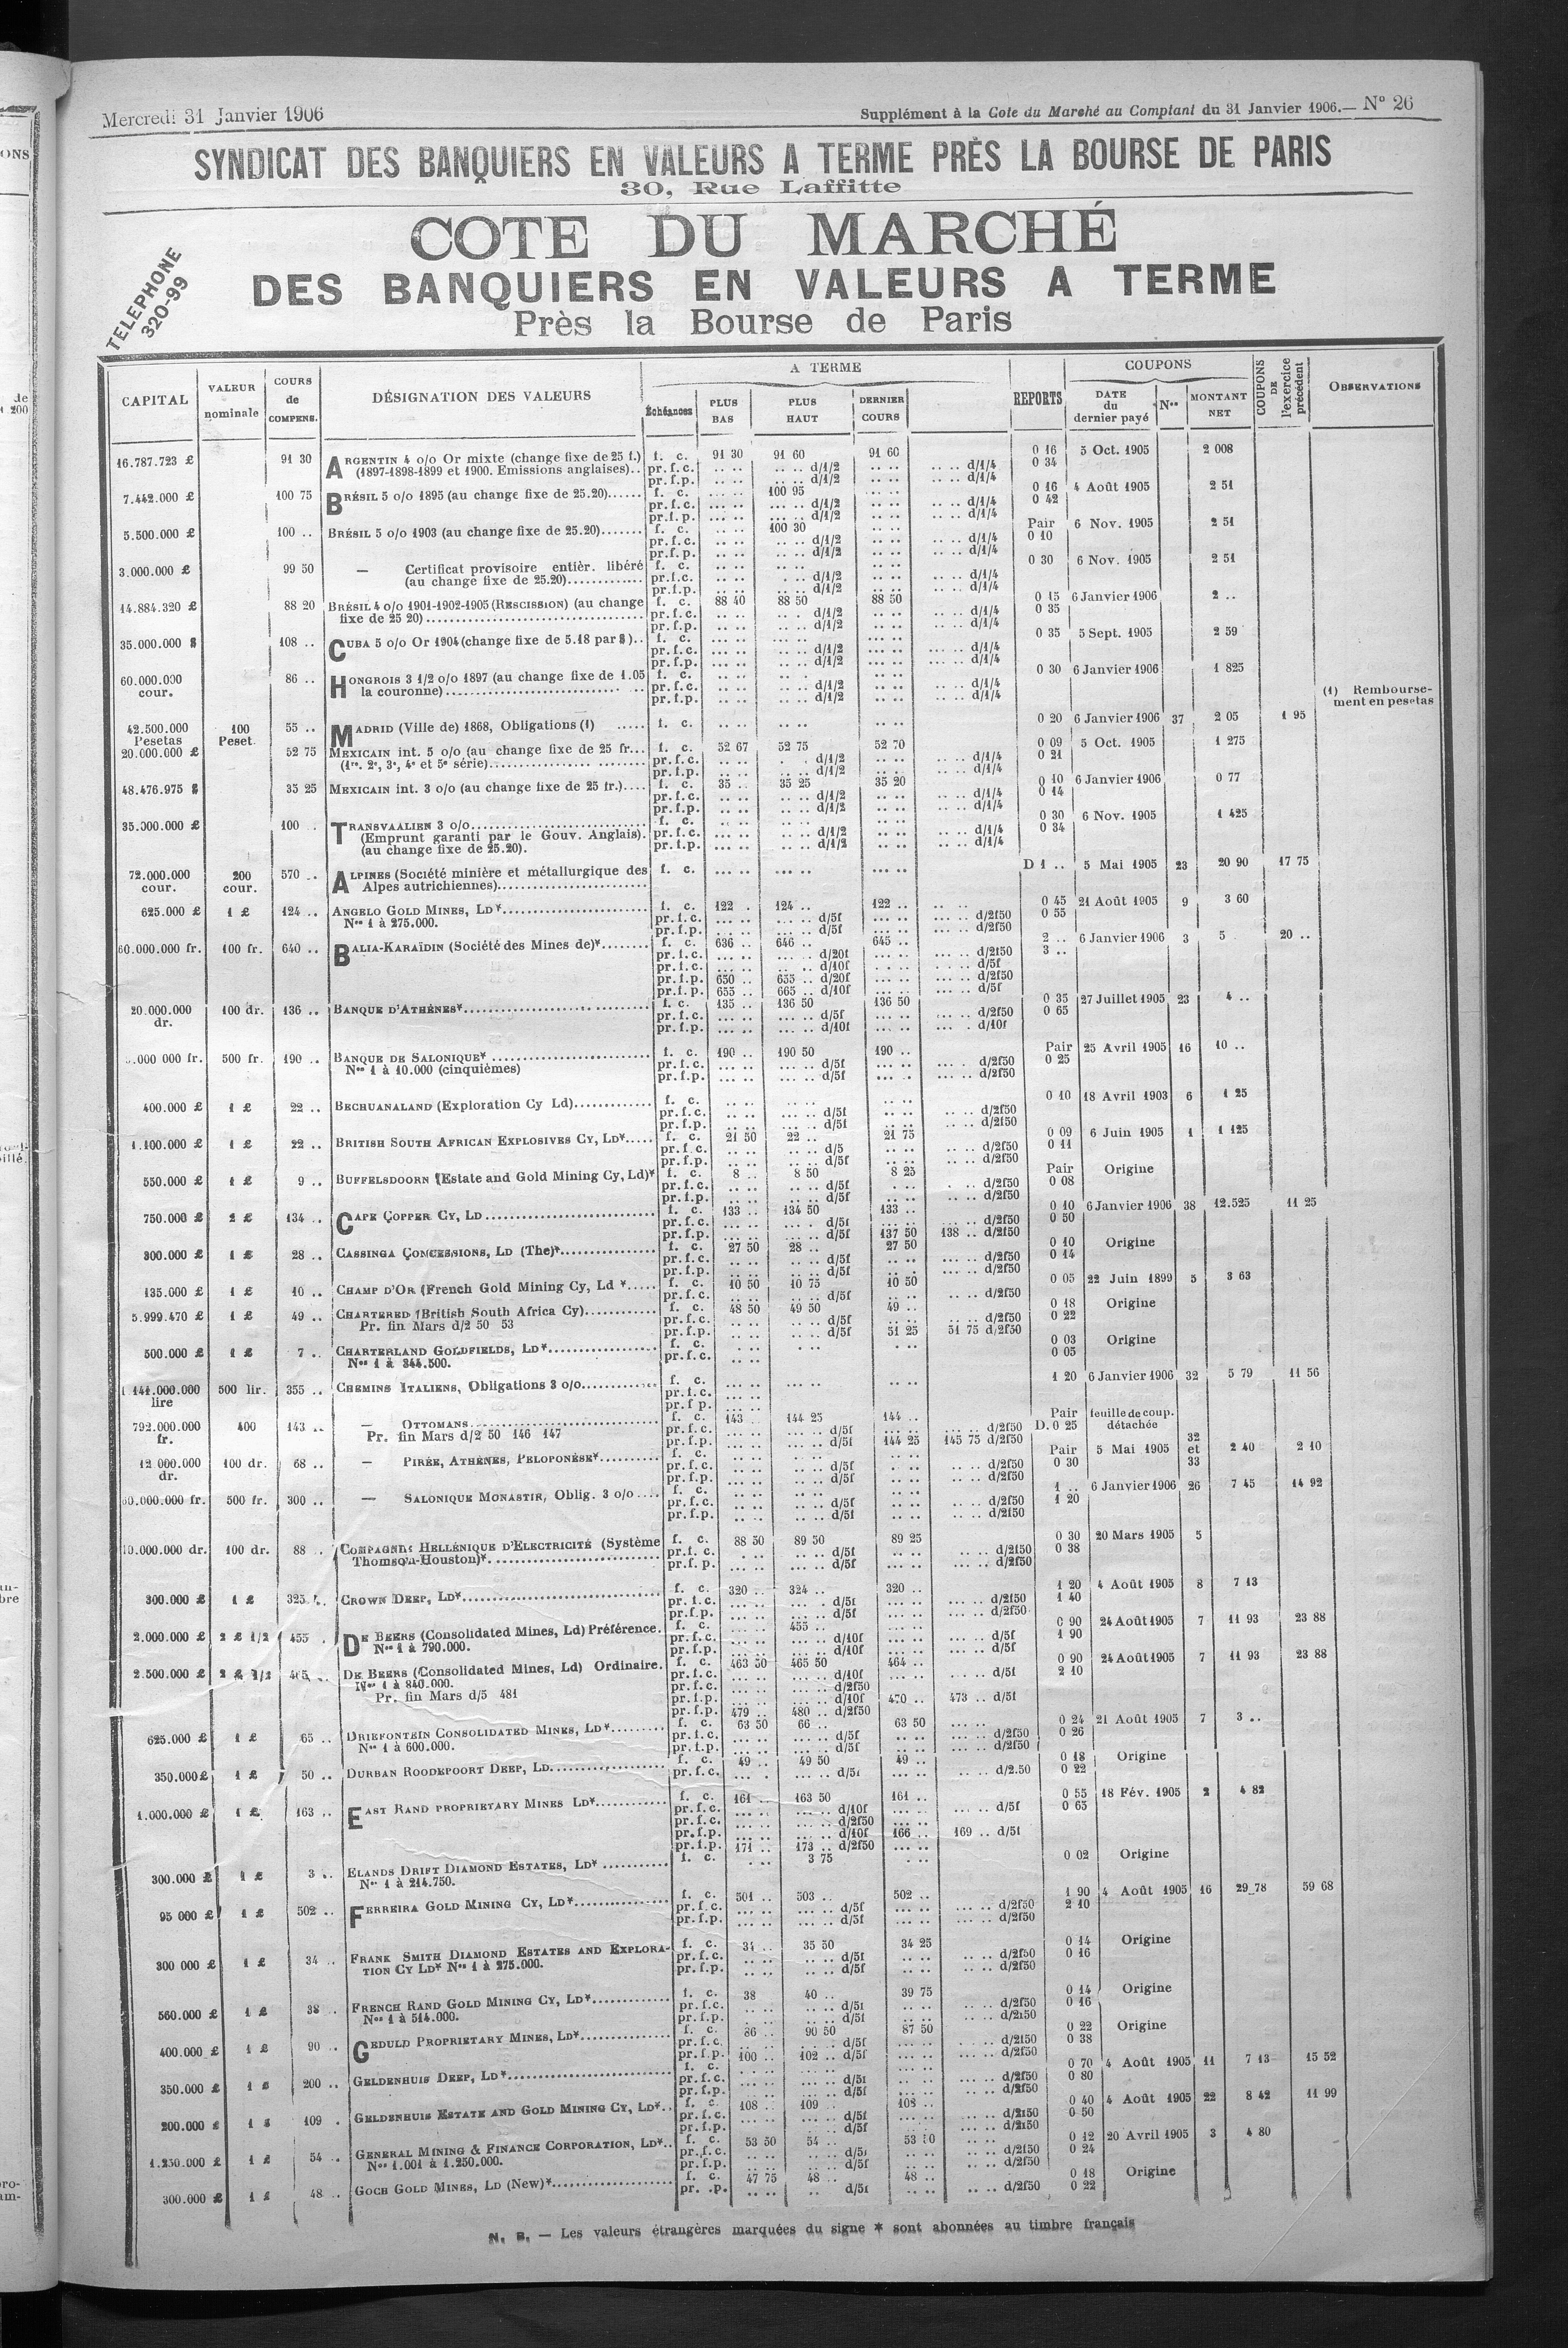 Mercredi 31 Janvier 1906
Supplément à la Cote du Marché au Comptant du 31 Janvier 1906.— N° 26
SYNDICAT DES BANQUIERS EN VALEURS A TERME PRÈS LA BOURSE DE PARIS
30, Rue Laffitte
TELEPHONE
320-99
COTE DU MARCHÉ
DES BANQUIERS EN VALEURS A TERME
Près la Bourse de Paris
CAPITAL | VALEUR nominale | COURS de COMPENS. | DÉSIGNATION DES VALEURS | A TERME | Échéances | PLUS BAS | PLUS HAUT | DERNIER COURS | REPORTS | COUPONS | DATE du dernier payé | Nos | MONTANT NET | COUPONS DE l'exercice précédent | OBSERVATIONS
16.787.723 £ 91 30 ARGENTIN 4 o/o Or mixte (change fixe de 25 f.) f. c. 91 30 91 60 91 60 0 16 5 Oct. 1905 2 008
(1897-1898-1899 et 1900. Emissions anglaises).. pr.f.c. .. .. .. .. d/1/2 .. .. .. .. d/1/4 0 34
pr.f.p. .. .. .. .. d/1/2 .. .. .. .. d/1/4
7.442.000 £ 100 75 BRÉSIL 5 o/o 1895 (au change fixe de 25.20)...... f. c. 100 95 0 16 4 Août 1905 2 51
pr.f.c. d/1/2 d/1/4 0 42
pr.f.p. d/1/2 d/1/4
5.500.000 £ 100 .. BRÉSIL 5 o/o 1903 (au change fixe de 25.20)....... f. c. 100 30 Pair 6 Nov. 1905 2 51
pr.f.c. d/1/2 d/1/4 0 10
pr.f.p. d/1/2 d/1/4
3.000.000 £ 99 50 — Certificat provisoire entièr. libéré f. c. 0 30 6 Nov. 1905 2 51
(au change fixe de 25.20)............. pr.f.c. d/1/2 d/1/4
pr.f.p. d/1/2 d/1/4
14.884.320 £ 88 20 BRÉSIL 4 o/o 1901-1902-1905 (RESCISSION) (au change f. c. 88 40 88 50 88 50 0 15 6 Janvier 1906 2 ..
fixe de 25 20)..... pr.f.c. d/1/2 d/1/4 0 35
pr.f.p. d/1/2 d/1/4
35.000.000 $ 108 .. CUBA 5 o/o Or 1904 (change fixe de 5.18 par $).. f. c. 0 35 5 Sept. 1905 2 59
pr.f.c. d/1/2 d/1/4
pr.f.p. d/1/2 d/1/4
60.000.000 cour. 86 .. HONGROIS 3 1/2 o/o 1897 (au change fixe de 1.05 f. c. 0 30 6 Janvier 1906 1 825
la couronne)..... pr.f.c. d/1/2 d/1/4
pr.f.p. d/1/2 d/1/4
(1) Rembourse-
ment en pesetas
42.500.000 Pesetas 100 Peset. 55 .. MADRID (Ville de) 1868, Obligations (1) ..... f. c. 0 20 6 Janvier 1906 37 2 05 1 95
20.000.000 £ 52 75 MEXICAIN int. 5 o/o (au change fixe de 25 fr... f. c. 52 67 52 75 52 70 0 09 5 Oct. 1905 1 275
(1re. 2e, 3e, 4e et 5e série)..... pr.f.c. d/1/2 d/1/4 0 21
pr.f.p. d/1/2 d/1/4
48.476.975 $ 35 25 MEXICAIN int. 3 o/o (au change fixe de 25 fr.).... f. c. 35 .. 35 25 35 20 0 10 6 Janvier 1906 0 77
pr.f.c. d/1/2 d/1/4 0 14
pr.f.p. d/1/2 d/1/4
35.000.000 £ 100 . TRANSVAALIEN 3 o/o..... f. c. 0 30 6 Nov. 1905 1 425
(Emprunt garanti par le Gouv. Anglais). pr.f.c. d/1/2 d/1/4 0 34
(au change fixe de 25.20). pr.f.p. d/1/2 d/1/4
72.000.000 cour. 200 cour. 570 .. ALPINES (Société minière et métallurgique des f. c. D 1 .. 5 Mai 1905 23 20 90 17 75
Alpes autrichiennes).....
625.000 £ 1 £ 124 .. ANGELO GOLD MINES, LD*..... f. c. 122 . 124 .. 122 .. 0 45 21 Août 1905 9 3 60
Nos 1 à 275.000. pr.f.c. d/5f d/2f50 0 55
pr.f.p. d/5f d/2f50
60.000.000 fr. 100 fr. 640 .. BALIA-KARAÏDIN (Société des Mines de)*........ f. c. 636 .. 646 .. 645 .. 2 .. 6 Janvier 1906 3 5 . 20 ..
pr.f.c. d/20f d/2f50 3 ..
pr.f.c. d/10f d/5f
pr.f.p. 650 .. 655 .. d/20f d/2f50
pr.f.p. 655 .. 665 .. d/10f d/5f
20.000.000 dr. 100 dr. 136 .. BANQUE D'ATHÈNES*..... f. c. 135 .. 136 50 136 50 0 35 27 Juillet 1905 23 4 ..
pr.f.c. d/5f d/2f50 0 65
pr.f.p. d/10f d/10f
.000 000 fr. 500 fr. 190 .. BANQUE DE SALONIQUE* ..... f. c. 190 .. 190 50 190 .. Pair 25 Avril 1905 16 10 ..
Nos 1 à 10.000 (cinquièmes) pr.f.c. d/5f d/2f50 0 25
pr.f.p. d/5f d/2f50
400.000 £ 1 £ 22 .. BECHUANALAND (Exploration Cy Ld)............. f. c. 0 10 18 Avril 1903 6 1 25
pr.f.c. d/5f d/2f50
pr.f.p. d/5f d/2f50
1.100.000 £ 1 £ 22 .. BRITISH SOUTH AFRICAN EXPLOSIVES CY, LD*..... f. c. 21 50 22 .. 21 75 0 09 6 Juin 1905 1 1 125
pr.f.c. d/5 d/2f50 0 11
pr.f.p. d/5f d/2f50
550.000 £ 1 £ 9 .. BUFFELSDOORN (Estate and Gold Mining Cy, Ld)* f. c. 8 .. 8 50 8 25 Pair Origine
pr.f.c. d/5f d/2f50 0 08
pr.f.p. d/5f d/2f50
750.000 £ 2 £ 134 .. CAPE COPPER CY, LD..... f. c. 133 .. 134 50 133 .. 0 10 6 Janvier 1906 38 12.525 11 25
pr.f.c. d/5f d/2f50 0 50
pr.f.p. d/5f 137 50 138 .. d/2f50
300.000 £ 1 £ 28 .. CASSINGA CONCESSIONS, LD (The)*..... f. c. 27 50 28 .. 27 50 0 10 Origine
pr.f.c. d/5f d/2f50 0 14
pr.f.p. d/5f d/2f50
135.000 £ 1 £ 10 .. CHAMP D'OR (French Gold Mining Cy, Ld *..... f. c. 10 50 10 75 10 50 0 05 22 Juin 1899 5 3 63
pr.f.c. d/5f d/2f50
5.999.470 £ 1 £ 49 .. CHARTERED (British South Africa Cy)..... f. c. 48 50 49 50 49 .. 0 18 Origine
Pr. fin Mars d/2 50 53 pr.f.c. d/5f d/2f50 0 22
pr.f.p. d/5f 51 25 51 75 d/2f50
500.000 £ 1 £ 7 .. CHARTERLAND GOLDFIELDS, LD*..... f. c. 0 03 Origine
Nos 1 à 344.500. pr.f.c. 0 05
1 141.000.000 lire 500 lir. 355 .. CHEMINS ITALIENS, Obligations 3 o/o..... f. c. 1 20 6 Janvier 1906 32 5 79 11 56
pr.f.c.
pr.f.p.
792.000.000 fr. 400 143 .. — OTTOMANS..... f. c. 143 .. 144 25 144 .. Pair feuille de coup. détachée
Pr. fin Mars d/2 50 146 147 pr.f.c. d/5f d/2f50 D. 0 25
pr.f.p. d/5f 144 25 145 75 d/2f50
12.000.000 dr. 100 dr. 68 .. — PIRÉE, ATHÈNES, PELOPONÈSE*..... f. c. Pair 5 Mai 1905 32 et 33 2 40 2 10
pr.f.c. d/5f d/2f50 0 30
pr.f.p. d/5f d/2f50
60.000.000 fr. 500 fr. 300 .. — SALONIQUE MONASTIR, Oblig. 3 o/o.... f. c. 1 .. 6 Janvier 1906 26 7 45 14 92
pr.f.c. d/5f d/2f50 1 20
pr.f.p. d/5f d/2f50
10.000.000 dr. 100 dr. 88 .. COMPAGNIE HELLÉNIQUE D'ELECTRICITÉ (Système f. c. 88 50 89 50 89 25 0 30 20 Mars 1905 5
Thomson-Houston)*..... pr.f.c. d/5f d/2f50 0 38
pr.f.p. d/5f d/2f50
300.000 £ 1 £ 325 .. CROWN DEEP, LD*..... f. c. 320 .. 324 .. 320 .. 1 20 4 Août 1905 8 7 13
pr.f.c. d/5f d/2f50 1 40
pr.f.p. d/5f d/2f50
2.000.000 £ 2 £ 1/2 455 . DE BEERS (Consolidated Mines, Ld) Préférence. f. c. 455 .. 0 90 24 Août 1905 7 11 93 23 88
Nos 1 à 790.000. pr.f.c. d/10f d/5f 1 90
pr.f.p. d/10f d/5f
2.500.000 £ 2 £ 1/2 465 DE BEERS (Consolidated Mines, Ld) Ordinaire. f. c. 463 50 465 50 464 .. 0 90 24 Août 1905 7 11 93 23 88
Nos 1 à 840.000. pr.f.c. d/10f d/5f 2 10
pr.f.c. d/2f50
Pr. fin Mars d/5 481 pr.f.p. d/10f 470 .. 473 .. d/5f
pr.f.p. 479 .. 480 .. d/2f50
625.000 £ 1 £ 65 .. DRIEFONTEIN CONSOLIDATED MINES, LD*..... f. c. 63 50 66 .. 63 50 0 24 21 Août 1905 7 3 ..
Nos 1 à 600.000. pr.f.c. d/5f d/2f50 0 26
pr.f.p. d/5f d/2f50
350.000 £ 1 £ 50 .. DURBAN ROODEPOORT DEEP, LD..... f. c. 49 .. 49 50 49 .. 0 18 Origine
pr.f.c. d/5f d/2.50 0 22
1.000.000 £ 1 £ 163 .. EAST RAND PROPRIETARY MINES LD*..... f. c. 161 .. 163 50 161 .. 0 55 18 Fév. 1905 2 4 82
pr.f.c. d/10f d/5f 0 65
pr.f.c. d/2f50
pr.f.p. d/10f 166 .. 169 .. d/5f
pr.f.p. 171 .. 173 .. d/2f50
300.000 £ 1 £ 3 .. ELANDS DRIFT DIAMOND ESTATES, LD* ..... f. c. 3 75 0 02 Origine
Nos 1 à 214.750.
95 000 £ 1 £ 502 .. FERREIRA GOLD MINING CY, LD*..... f. c. 501 .. 503 .. 502 .. 1 90 4 Août 1905 16 29 78 59 68
pr.f.c. d/5f d/2f50 2 10
pr.f.p. d/5f d/2f50
300 000 £ 1 £ 34 .. FRANK SMITH DIAMOND ESTATES AND EXPLORA- f. c. 34 .. 35 50 34 25 0 14 Origine
TION CY LD* Nos 1 à 275.000. pr.f.c. d/5f d/2f50 0 16
pr.f.p. d/5f d/2f50
560.000 £ 1 £ 38 .. FRENCH RAND GOLD MINING CY, LD*..... f. c. 38 40 .. 39 75 0 14 Origine
Nos 1 à 514.000. pr.f.c. d/5f d/2f50 0 16
pr.f.p. d/5f d/2f50
400.000 £ 1 £ 90 .. GEDULD PROPRIETARY MINES, LD*..... f. c. 86 .. 90 50 87 50 0 22 Origine
pr.f.c. d/5f d/2f50 0 38
pr.f.p. 100 .. 102 .. d/5f d/2f50
350.000 £ 1 £ 200 .. GELDENHUIS DEEP, LD*..... f. c. 0 70 4 Août 1905 11 7 13 15 52
pr.f.c. d/5f d/2f50 0 80
pr.f.p. d/5f d/2f50
200.000 £ 1 £ 109 . GELDENHUIS ESTATE AND GOLD MINING CY, LD*.. f. c. 108 .. 109 .. 108 .. 0 40 4 Août 1905 22 8 42 11 99
pr.f.c. d/5f d/2f50 0 50
pr.f.p. d/5f d/2f50
1.250.000 £ 1 £ 54 .. GENERAL MINING & FINANCE CORPORATION, LD*.. f. c. 53 50 54 .. 53 50 0 12 20 Avril 1905 3 4 80
Nos 1.001 à 1.250.000. pr.f.c. d/5f d/2f50 0 24
pr.f.p. d/5f d/2f50
300.000 £ 1 £ 48 .. GOCH GOLD MINES, LD (New)*..... f. c. 47 75 48 .. 48 .. 0 18 Origine
pr. .p. d/5f d/2f50 0 22
N. B. — Les valeurs étrangères marquées du signe * sont abonnées au timbre français